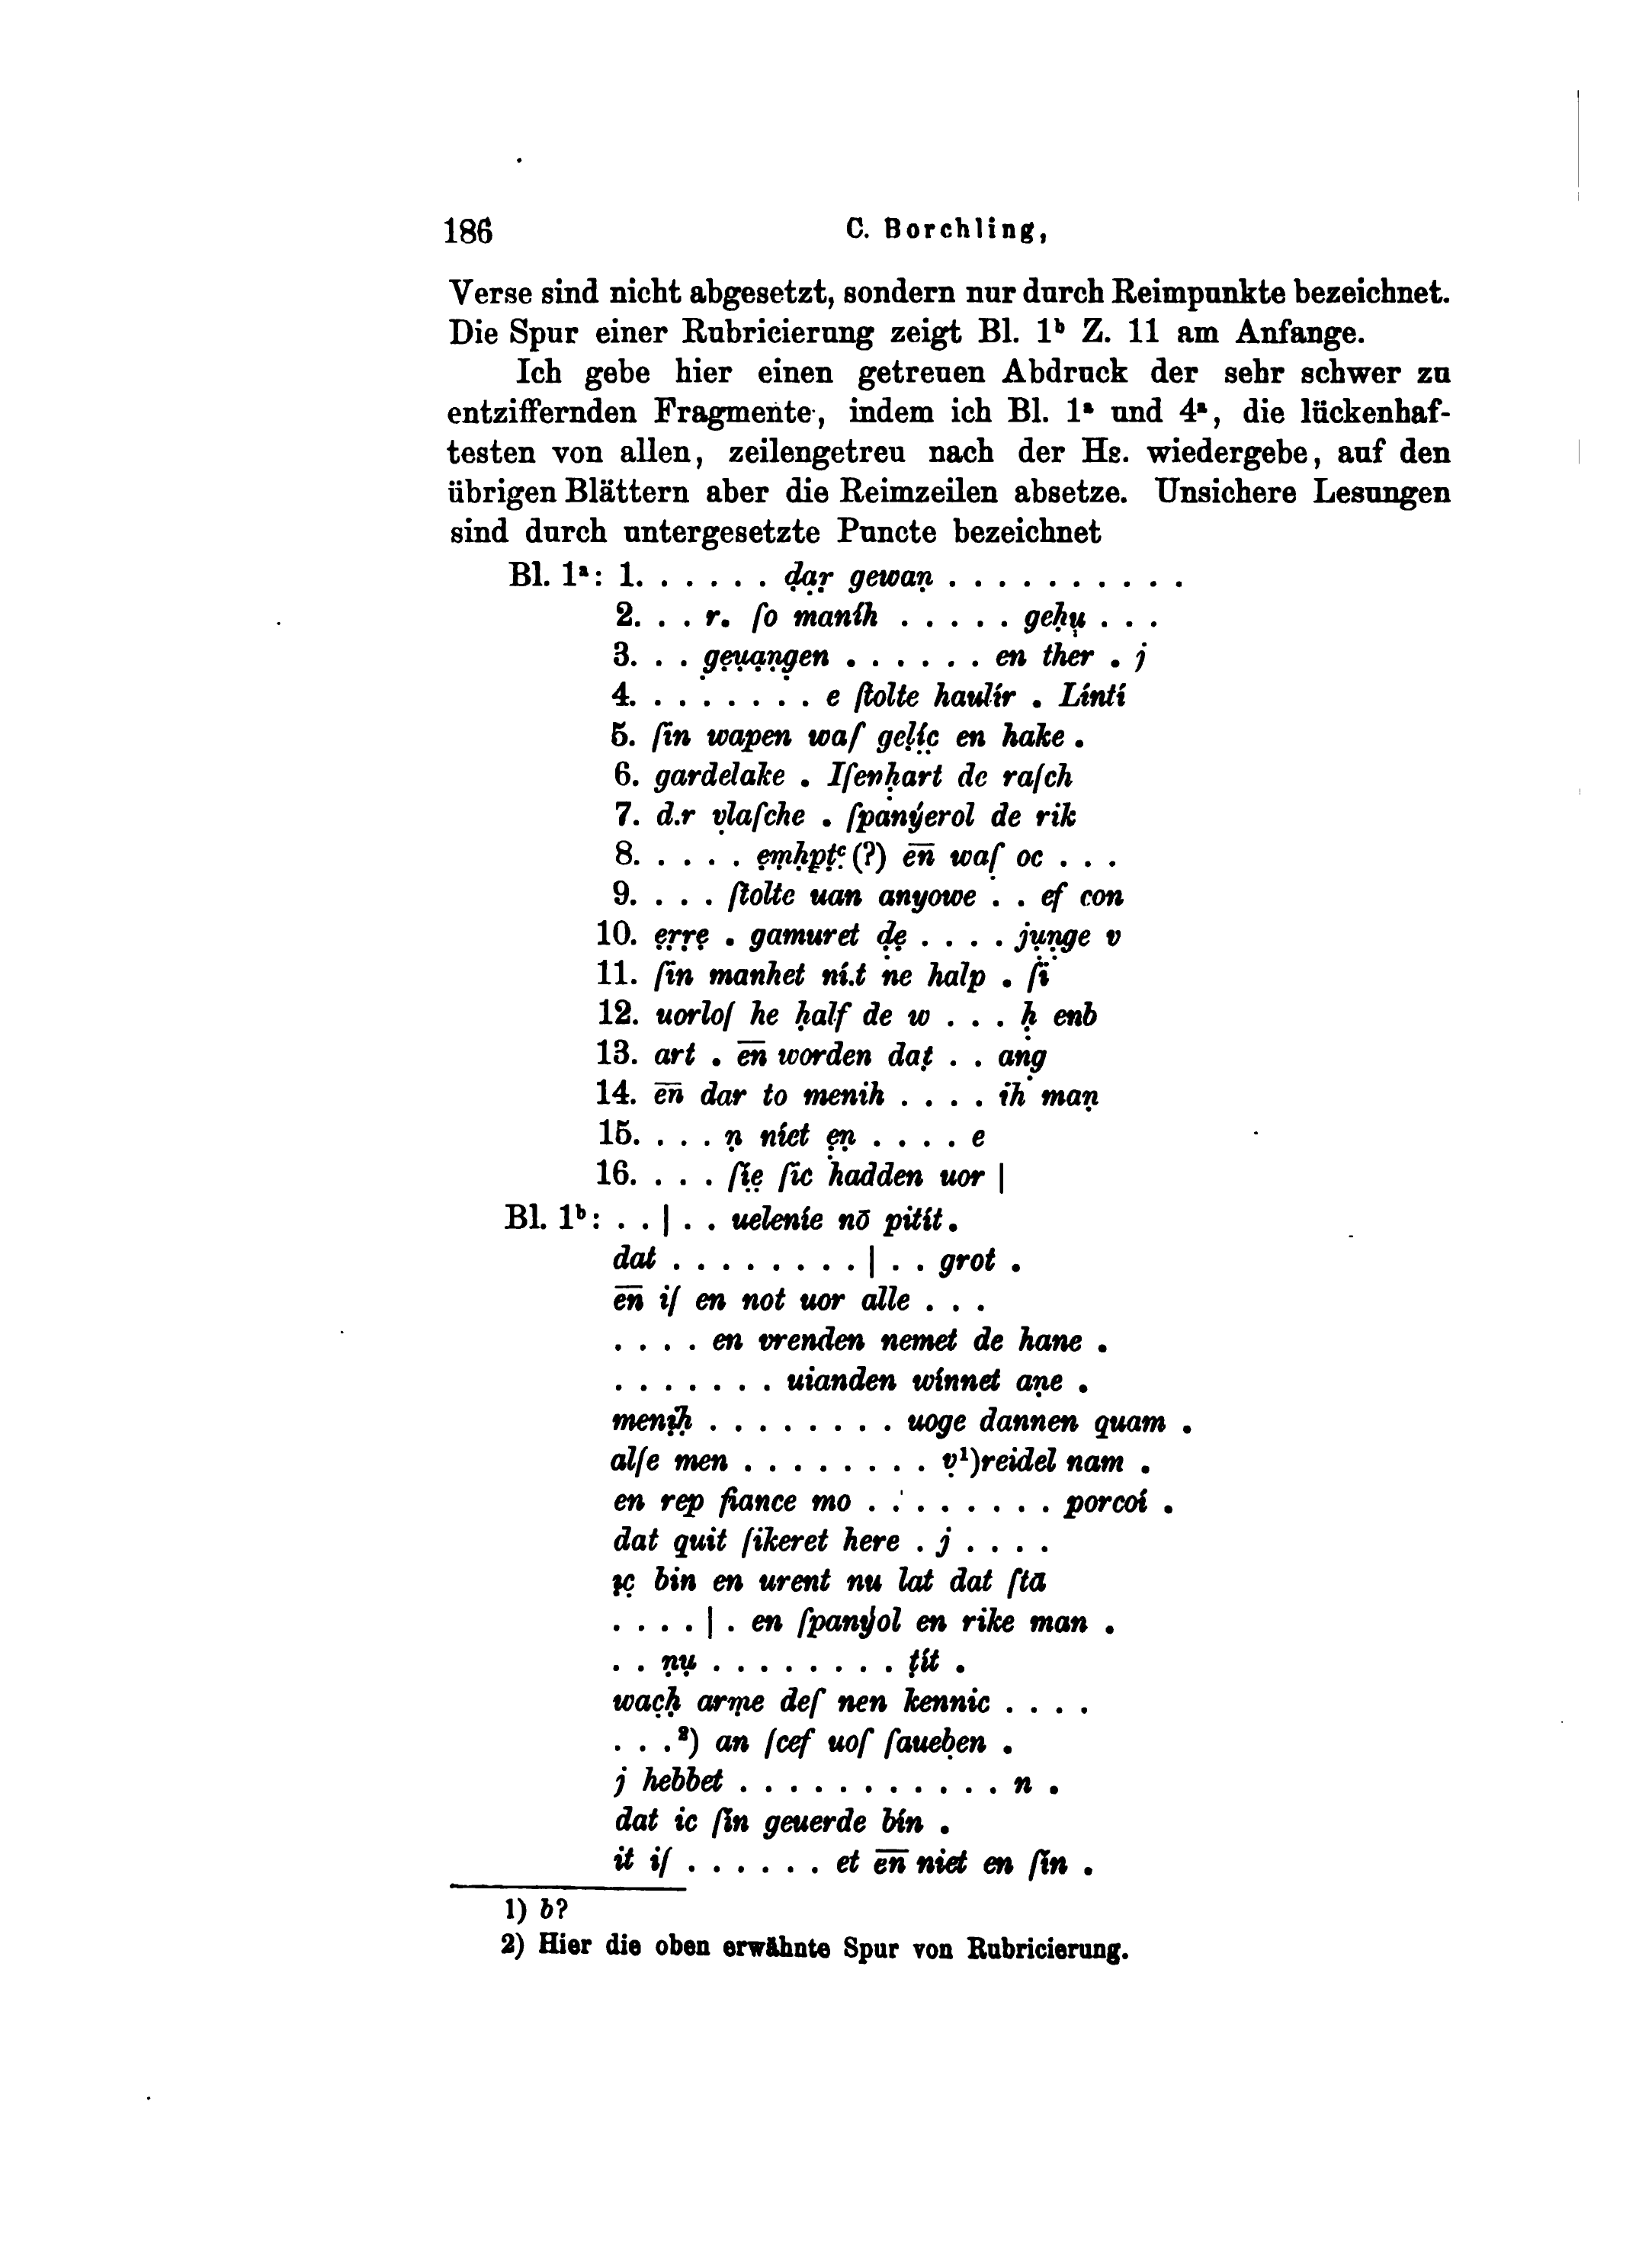 186
C. Borchling,
Verse sind nicht abgesetzt, sondern nur durch Reimpunkte bezeichnet.
Die Spur einer Rubricierung zeigt Bl. 1ᵇ Z. 11 am Anfange.
Ich gebe hier einen getreuen Abdruck der sehr schwer zu
entziffernden Fragmente, indem ich Bl. 1ᵃ und 4ᵃ, die lückenhaf-
testen von allen, zeilengetreu nach der Hs. wiedergebe, auf den
übrigen Blättern aber die Reimzeilen absetze. Unsichere Lesungen
sind durch untergesetzte Puncte bezeichnet
Bl. 1ᵃ: 1. . . . . . . ḍạṛ gewaṇ . . . . . . . . . .
2. . . . r. ſo maníh . . . . . geḥụ . . .
3. . . . g̣ẹụạṇg̣en . . . . . . en ther . j
4. . . . . . . . . e ſtolte haulír . Líntí
5. ſin wapen waſ geḷị́c̣ en hake .
6. gardelake . Iſenḥart de raſch
7. d.r ṿlaſche . ſpanẏ́erol de rik
8. . . . . . ẹṃḥp̣ṭᶜ̣ (?) e̅n̅ waſ̣ oc . . .
9. . . . . ſtolte uan anyowe . . ef con
10. ẹṛṛẹ . gamuret ḍẹ . . . . jụṇge v
11. ſin manhet ní.t ne halp . ſi̇̈
12. uorloſ he ḥalf de w . . . ḥ enb
13. art . e̅n̅ worden daṭ . . ang̣
14. e̅n̅ dar to menih . . . . ih maṇ
15. . . . . ṇ níet ẹṇ . . . . e
16. . . . . ſịẹ ſic hadden uor |
Bl. 1ᵇ: . . | . . ueleníe nō pitít .
dat . . . . . . . . | . . grot .
e̅n̅ iſ en not uor alle . . .
. . . . en vrenden nemet de hane .
. . . . . . . uianden wínnet aṇe .
menịḥ . . . . . . . . uoge dannen quam .
alſe men . . . . . . . . ṿ¹)reidel nam .
en rep fiance mo . . . . . . . . porcoí .
dat quit ſikeret here . j . . . .
ịc̣ bin en urent nu lat dat ſtā
. . . . | . en ſpanẏ́ol en rike man .
. . ṇụ . . . . . . . . ṭít .
wac̣ḥ arṃe deſ nen kennic . . . .
. . .²) an ſcef uoſ ſaueḅen .
j hebbet . . . . . . . . . . . n .
dat ic ſin geuerde bín .
it iſ . . . . . . et e̅n̅ niet en ſin .
1) b?
2) Hier die oben erwähnte Spur von Rubricierung.